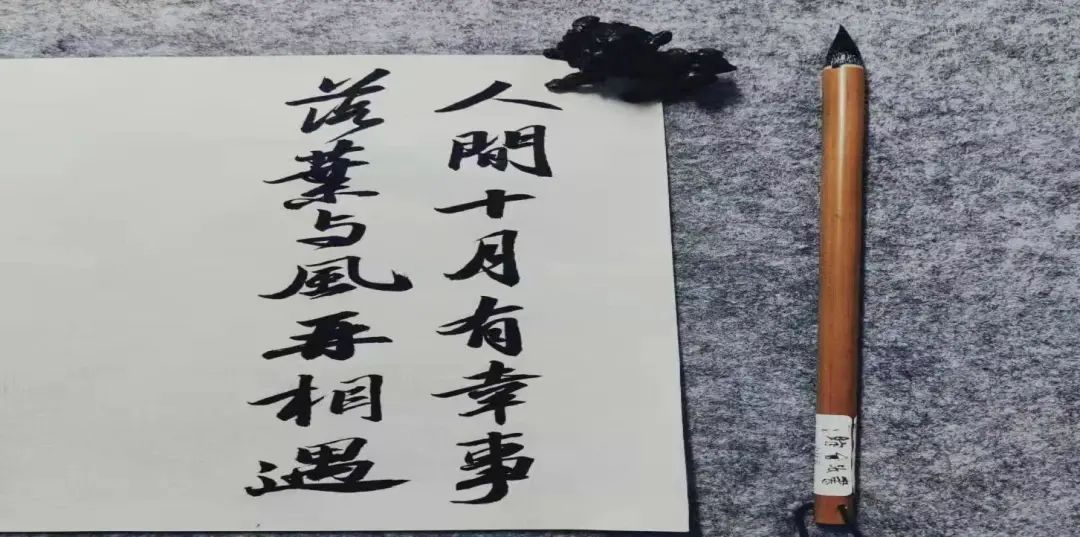 人間十月有幸事
落葉与風再相遇